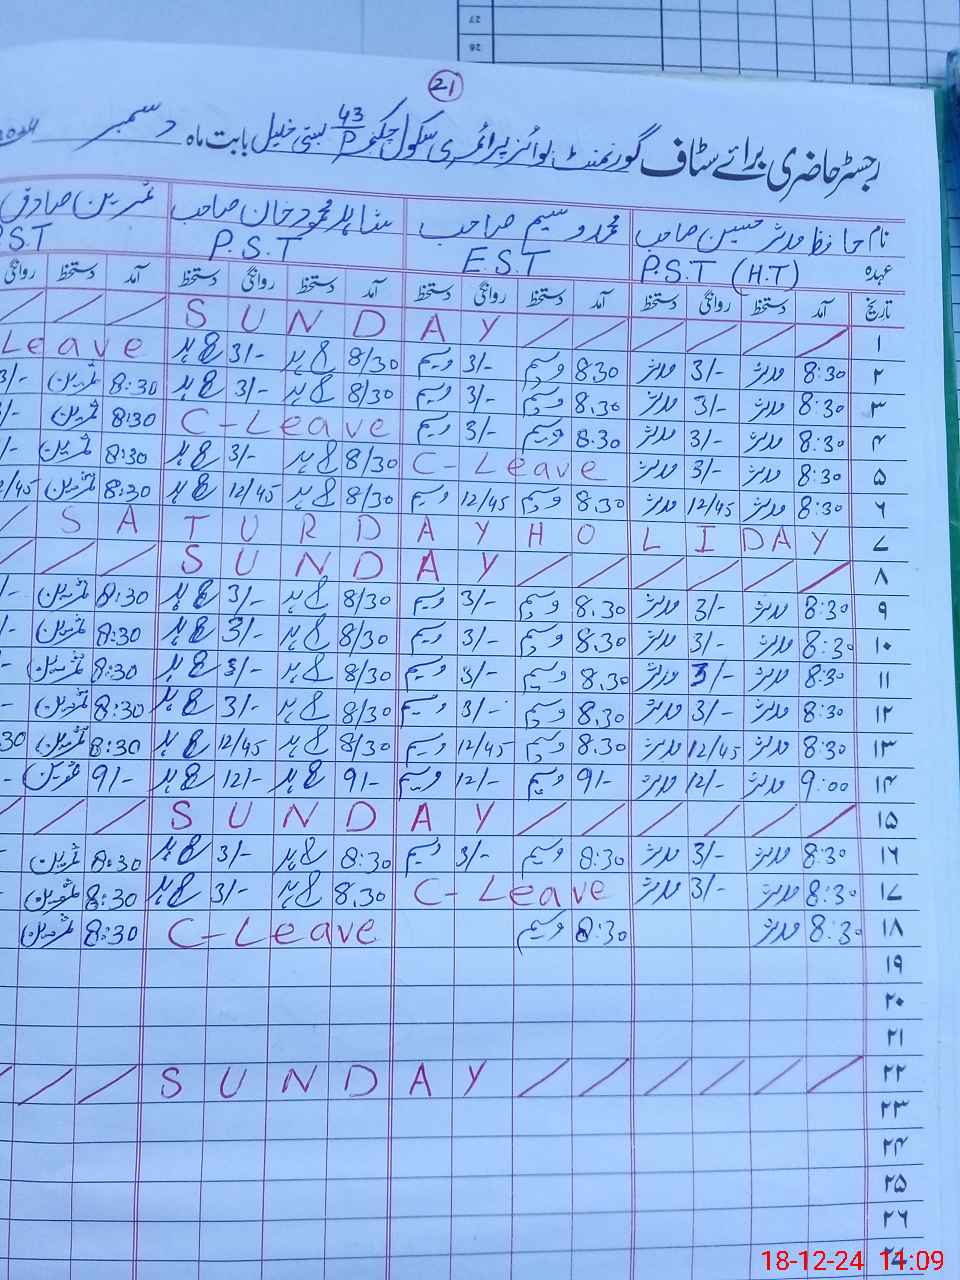 27
26
21
رجسٹر حاضری برائے سٹاف گورنمنٹ بوائز پرائمری سکول چک 43/P بستی خلیل بابت ماہ دسمبر 2024
نام حافظ مدثر حسین صاحب محمد وسیم صاحب شاہد محمود خان صاحب ثمرین صادق
عہدہ P.S.T (H.T) E.S.T P.S.T P.S.T
تاریخ آمد دستخط روانگی دستخط آمد دستخط روانگی دستخط آمد دستخط روانگی دستخط آمد دستخط روانگی
۱ SUNDAY
۲ 8:30 مدثر 3/- مدثر 8.30 وسیم 3/- وسیم 8/30 شاہد 3/- شاہد Leave
۳ 8:30 مدثر 3/- مدثر 8.30 وسیم 3/- وسیم 8/30 شاہد 3/- شاہد 8:30 ثمرین 3/-
۴ 8:30 مدثر 3/- مدثر 8.30 وسیم 3/- وسیم C-Leave 8:30 ثمرین /-
۵ 8:30 مدثر 3/- مدثر C-Leave 8/30 شاہد 3/- شاہد 8:30 ثمرین /-
۶ 8:30 مدثر 12/45 مدثر 8.30 وسیم 12/45 وسیم 8/30 شاہد 12/45 شاہد 8:30 ثمرین 2/45
۷ SATURDAY HOLIDAY
۸ SUNDAY
۹ 8:30 مدثر 3/- مدثر 8.30 وسیم 3/- وسیم 8/30 شاہد 3/- شاہد 8:30 ثمرین /-
۱۰ 8:30 مدثر 3/- مدثر 8.30 وسیم 3/- وسیم 8/30 شاہد 3/- شاہد 8:30 ثمرین /-
۱۱ 8:30 مدثر 3/- مدثر 8.30 وسیم 3/- وسیم 8/30 شاہد 3/- شاہد 8:30 ثمرین -
۱۲ 8:30 مدثر 3/- مدثر 8.30 وسیم 3/- وسیم 8/30 شاہد 3/- شاہد 8:30 ثمرین -
۱۳ 8:30 مدثر 12/45 مدثر 8.30 وسیم 12/45 وسیم 8/30 شاہد 12/45 شاہد 8:30 ثمرین 30
۱۴ 9:00 مدثر 12/- مدثر 9/- وسیم 12/- وسیم 9/- شاہد 12/- شاہد 9/- ثمرین -
۱۵ SUNDAY
۱۶ 8:30 مدثر 3/- مدثر 8:30 وسیم 3/- وسیم 8:30 شاہد 3/- شاہد 8:30 ثمرین -
۱۷ 8:30 مدثر 3/- مدثر C-Leave 8.30 شاہد 3/- شاہد 8:30 ثمرین -
۱۸ 8:30 مدثر 8:30 وسیم C-Leave 8:30 ثمرین
۱۹
۲۰
۲۱
۲۲ SUNDAY
۲۳
۲۴
۲۵
۲۶
۲۷
18-12-24 14:09